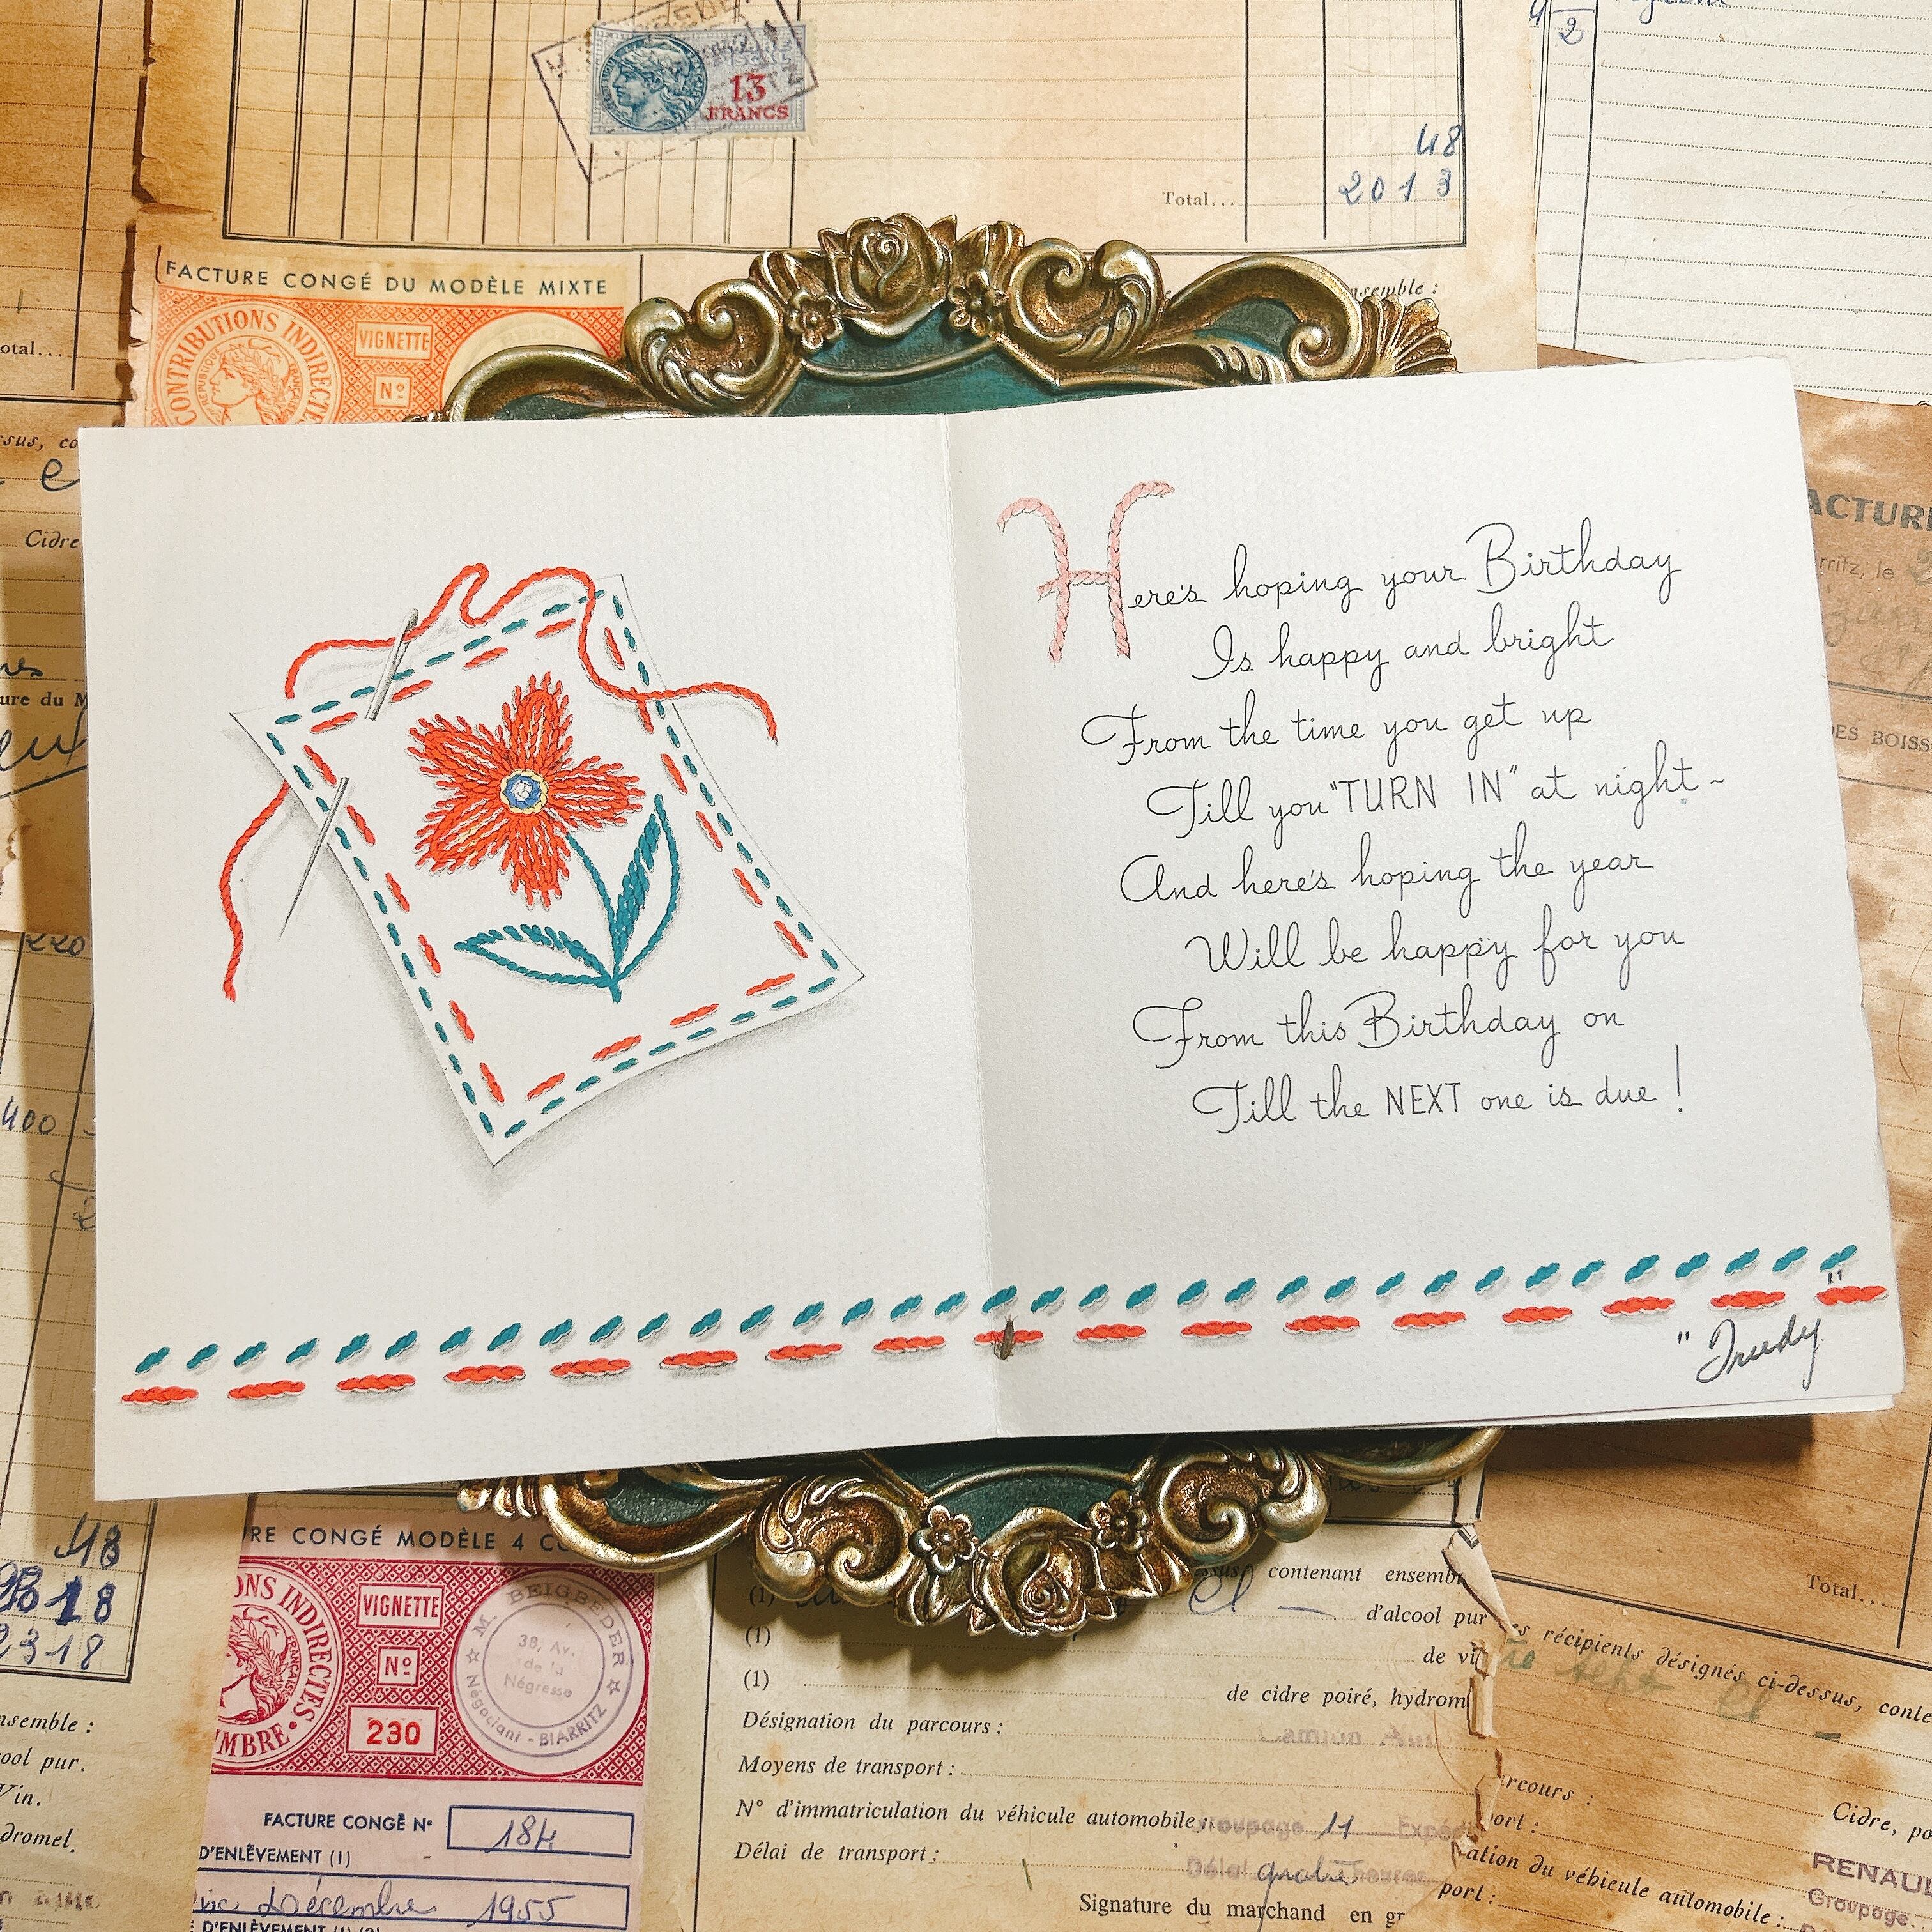 13
FRANCS
48
Total...
2013
2
FACTURE CONGÉ DU MODÈLE MIXTE
CONTRIBUTIONS INDIRECTES
VIGNETTE
Nº
otal...
Cidre
ure du M
ACTURE
rritz, le
DES BOISS
Here's hoping your Birthday
Is happy and bright
From the time you get up
Till you "TURN IN" at night~
And here's hoping the year
Will be happy for you
From this Birthday on
Till the NEXT one is due!
"Trudy"
220
400
48
18
2318
RE CONGÉ MODÈLE 4 C
ONS INDIRECTES
VIGNETTE
Nº
230
MBRE
M. BEIGBEDER
38, Av.
de la
Négresse
Négociant - BIARRITZ
FACTURE CONGÉ Nº 184
D'ENLÈVEMENT (1)
Décembre 1955
D'ENLÈVEMENT (1) (2)
nsemble :
ool pur.
Vin.
dromel.
contenant ensemb
(1)
d'alcool pur
(1)
de vi
(1)
de cidre poiré, hydrom
Désignation du parcours :
Moyens de transport :
N° d'immatriculation du véhicule automobile : Groupage 11
Délai de transport :
Signature du marchand en gr
Total...
récipients désignés ci-dessus, conte
rcours :
port :
ation du véhicule automobile :
port :
Cidre, po
RENAUL
Groupage